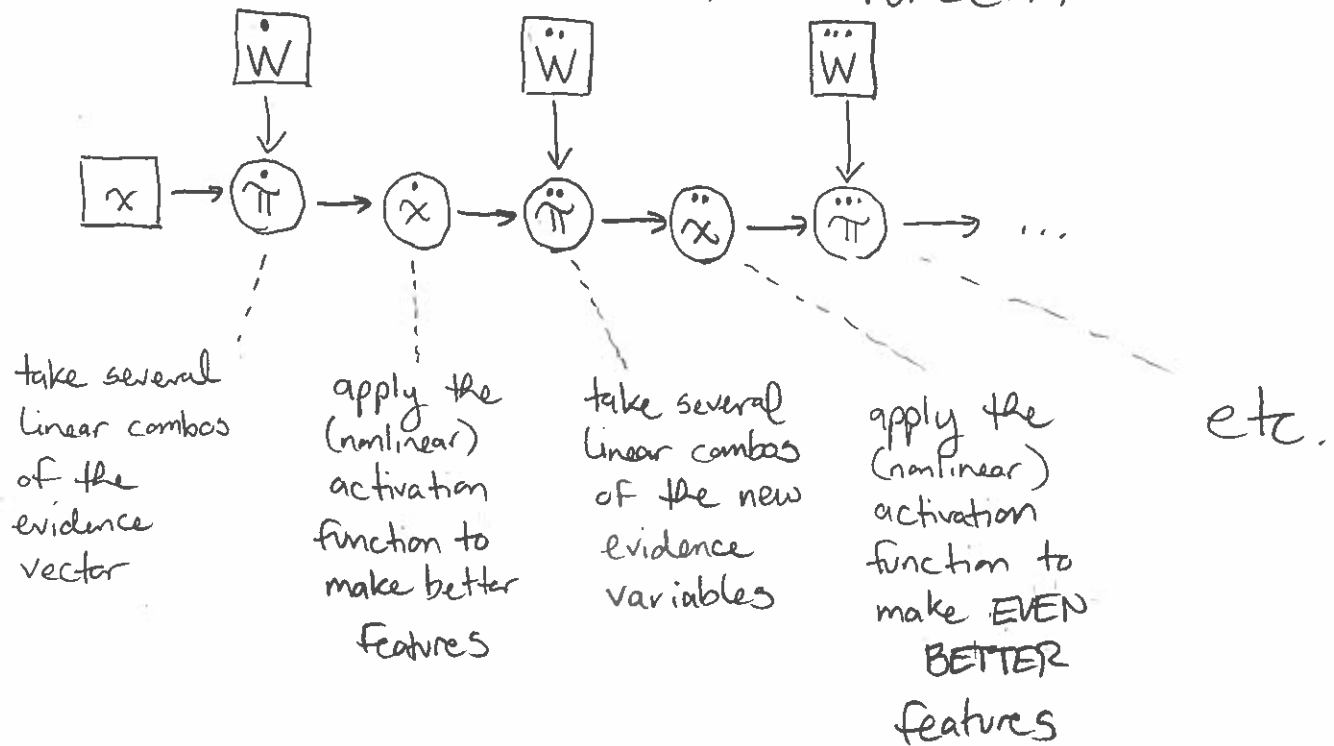 Ẇ Ẅ W⃛
x π̇ ẋ π̈ ẍ π⃛ ...
take several
linear combos
of the
evidence
vector
apply the
(nonlinear)
activation
function to
make better
features
take several
linear combos
of the new
evidence
variables
apply the
(nonlinear)
activation
function to
make EVEN
BETTER
features
etc.